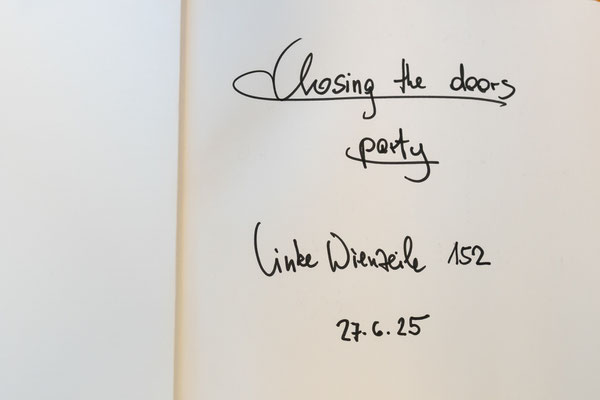 Chosing the doors
party
Linke Wienzeile 152
27.6.25